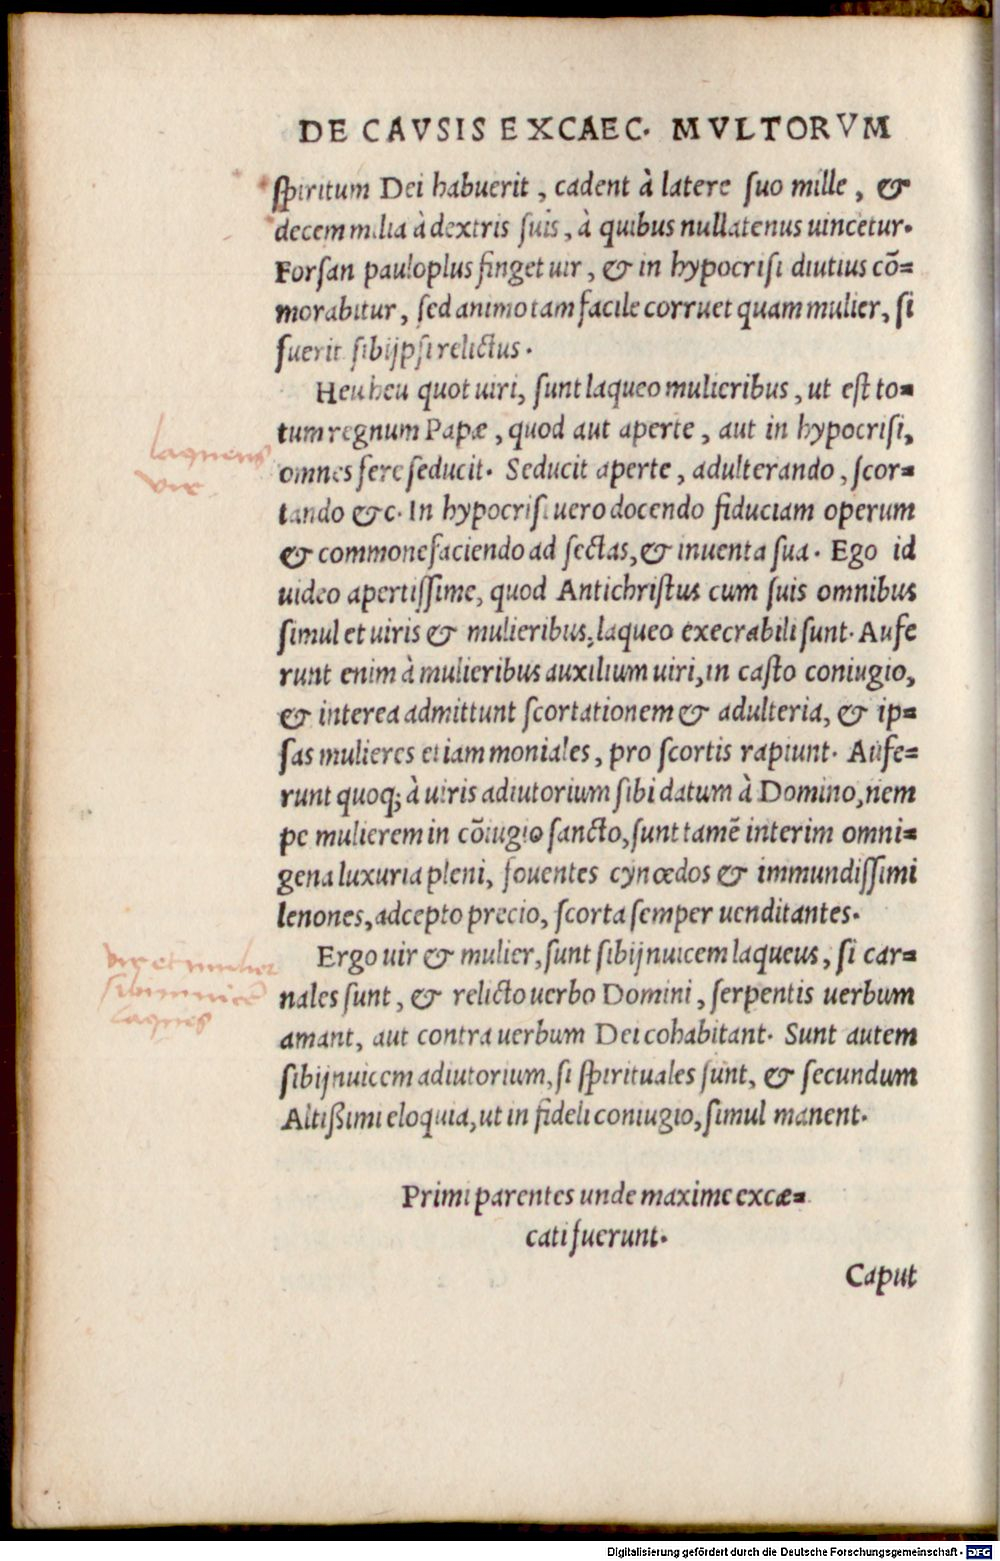 DE CAVSIS EXCAEC. MVLTORVM
spiritum Dei habuerit, cadent à latere suo mille, &
decem milia à dextris suis, à quibus nullatenus uincetur.
Forsan pauloplus finget uir, & in hypocrisi diutius cõ=
morabitur, sed animo tam facile corruet quam mulier, si
fuerit sibijpsi relictus.
Heu heu quot uiri, sunt laqueo mulieribus, ut est to=
tum regnum Papæ, quod aut aperte, aut in hypocrisi,
laqueus
uir
omnes fere seducit. Seducit aperte, adulterando, scor=
tando &c. In hypocrisi uero docendo fiduciam operum
& commonefaciendo ad sectas, & inuenta sua. Ego id
uideo apertissime, quod Antichristus cum suis omnibus
simul et uiris & mulieribus, laqueo execrabili sunt. Aufe
runt enim à mulieribus auxilium uiri, in casto coniugio,
& interea admittunt scortationem & adulteria, & ip=
sas mulieres etiam moniales, pro scortis rapiunt. Aufe=
runt quoq; à uiris adiutorium sibi datum à Domino, nem
pe mulierem in cõiugio sancto, sunt tamẽ interim omni=
gena luxuria pleni, fouentes cynœdos & immundissimi
lenones, adcepto precio, scorta semper uenditantes.
uir et mulier
sibi inuicẽ
laqueus
Ergo uir & mulier, sunt sibijnuicem laqueus, si car=
nales sunt, & relicto uerbo Domini, serpentis uerbum
amant, aut contra uerbum Dei cohabitant. Sunt autem
sibijnuicem adiutorium, si spirituales sunt, & secundum
Altißimi eloquia, ut in fideli coniugio, simul manent.
Primi parentes unde maxime excæ=
cati fuerunt.
Caput
Digitalisierung gefördert durch die Deutsche Forschungsgemeinschaft - DFG